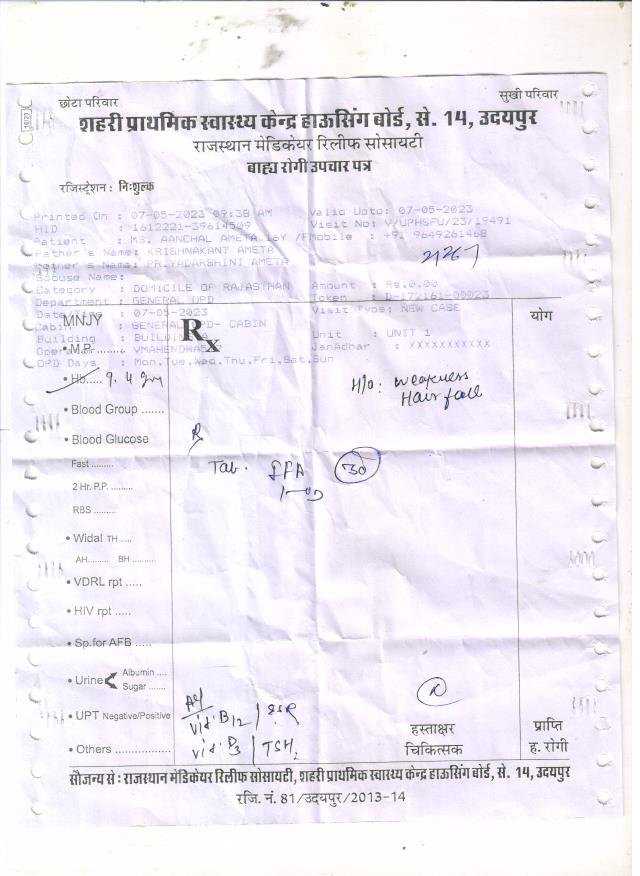 छोटा परिवार सुखी परिवार
शहरी प्राथमिक स्वास्थ्य केन्द्र हाऊसिंग बोर्ड, से. 14, उदयपुर
राजस्थान मेडिकेयर रिलीफ सोसायटी
बाह्य रोगी उपचार पत्र
रजिस्ट्रेशन : निःशुल्क
Printed On : 07-05-2023 09:38 AM Valid Upto: 07-05-2023
HID : 1612221-39614509 Visit No: V/UPHSFU/23/19491
Patient : MS. AANCHAL AMETA 16Y /F Mobile : +91 9649261468
Father's Name: KRISHNAKANT AMETA
Mother's Name: PRIYADARSHINI AMETA
Spouse Name:
Category : DOMICILE OF RAJASTHAN Amount : Rs.0.00
Department : GENERAL OPD Token : D-172161-00023
Date/Time : 07-05-2023 Visit Type: NEW CASE
MNJY योग
Cabin : GENERAL OPD- CABIN
Rx
Building : BUILDING Unit : UNIT 1
• M.P. ........
Operator : VMAHENDRA JanAdhar : XXXXXXXXXXX
OPD Days : Mon,Tue,Wed,Thu,Fri,Sat,Sun
• Hb..... 9.4 gm H/o: weakness
Hair fall
• Blood Group .......
• Blood Glucose R
Fast ......... Tab. IFA 30
1-OD
2 Hr. P.P. .........
RBS .........
• Widal TH ....
AH......... BH ..........
• VDRL rpt .....
• HIV rpt .....
• Sp.for AFB .....
• Urine Albumin ....
Sugar .......
• UPT Negative/Positive vit. B12 हस्ताक्षर प्राप्ति
• Others ................. vit. D3 / TSH चिकित्सक ह. रोगी
सौजन्य से : राजस्थान मेडिकेयर रिलीफ सोसायटी, शहरी प्राथमिक स्वास्थ्य केन्द्र हाऊसिंग बोर्ड, से. 14, उदयपुर
रजि. नं. 81/उदयपुर/2013-14